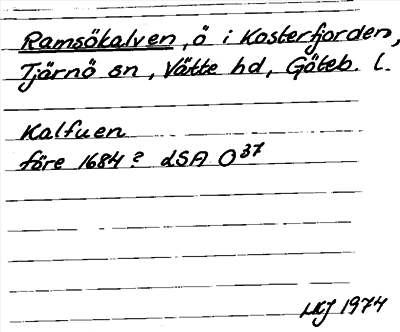 Ramsökalven, ö i Kosterfjorden,
Tjärnö sn, Vätte hd, Göteb. l.
Kalfuen
före 1684? LSA O37
LKJ 1974